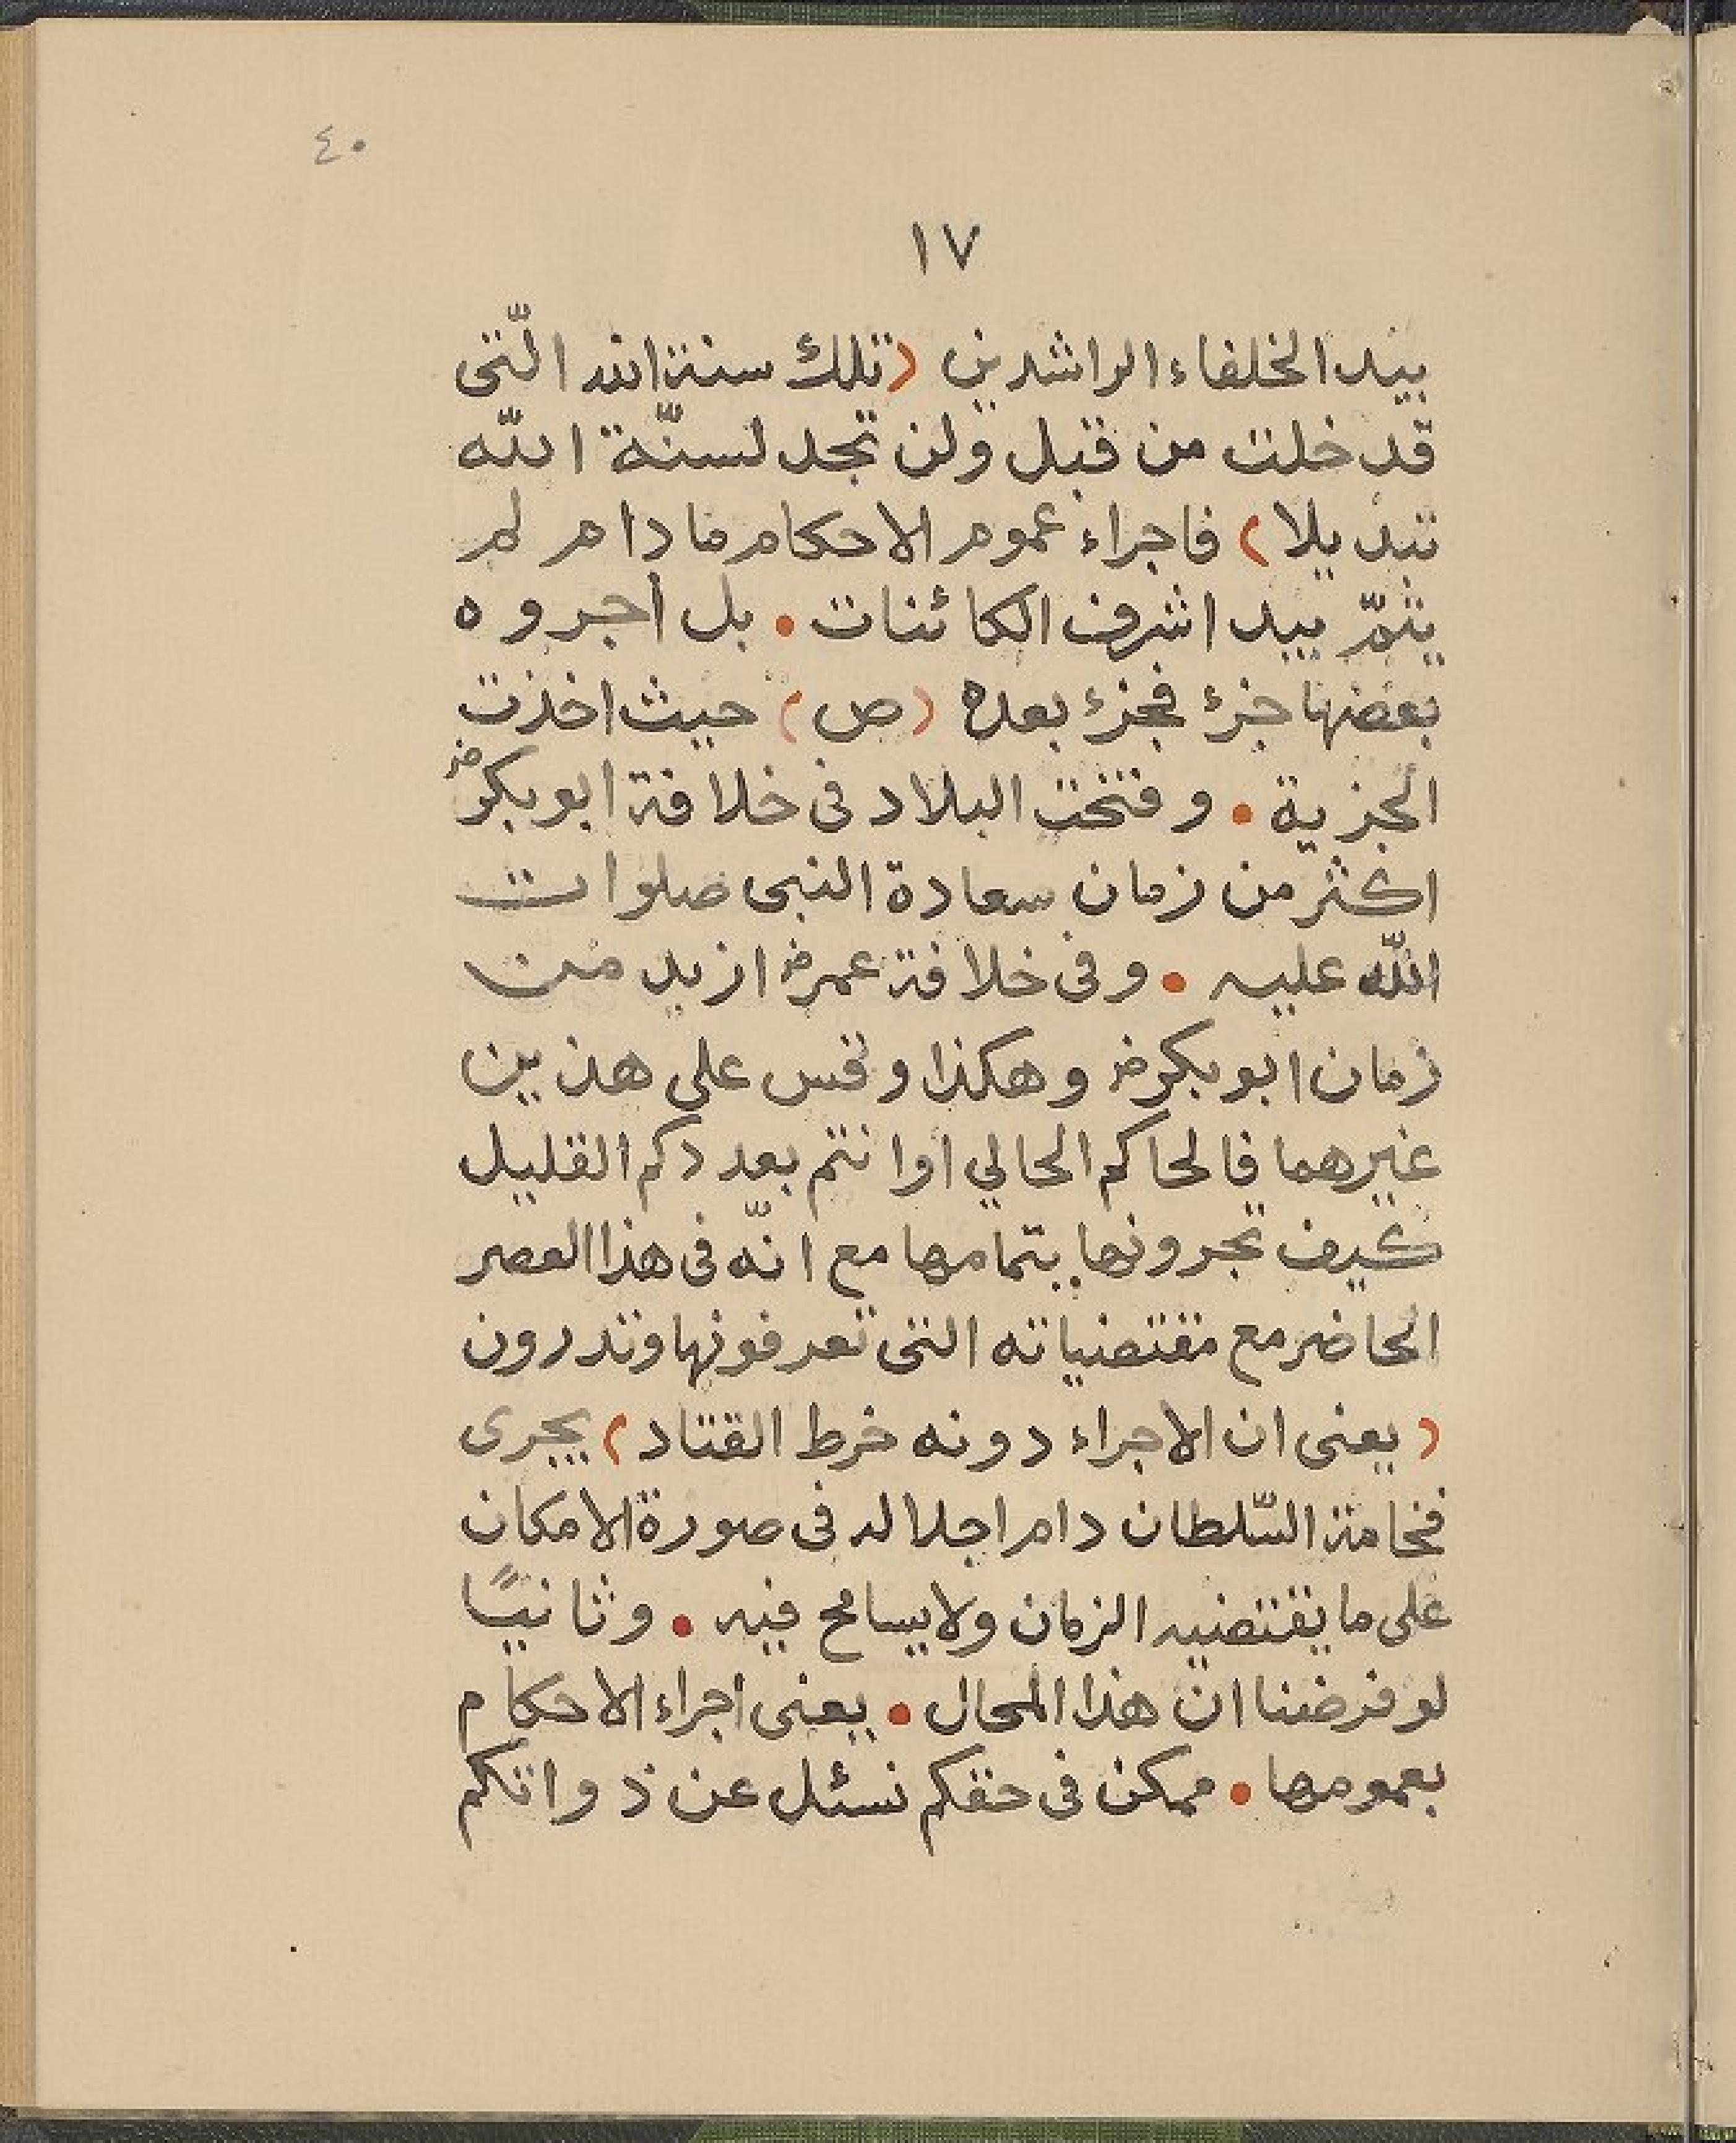 ٤٠
١٧
بيد الخلفاء الراشدين (تلك سنة الله الّتى
قد خلت من قبل ولن تجد لسنّة الله
تبديلا) فاجراء عموم الاحكام مادام لم
يتمّ بيد اشرف الكائنات • بل اجروه
بعضها جزء فجزء بعده (ص) حيث اخذت
الجزية • وفتحت البلاد فى خلافة ابو بكر رض
اكثر من زمان سعادة النبى صلوات
الله عليه • وفى خلافة عمر رض ازيد من
زمان ابو بكر رض وهكذا وقس على هذين
غيرهما فالحاكم الحالي اوانتم بعددكم القليل
كيف تجرونها بتمامها مع انّه فى هذا العصر
الحاضر مع مقتضياته التى تعرفونها وتدرون
(يعنى ان الاجراء دونه خرط القتاد) يجرى
فخامة السّلطان دام اجلاله فى صورة الامكان
على ما يقتضيه الزمان ولا يسامح فيه • وثانيًا
لو فرضنا ان هذا المحال • يعنى اجراء الاحكام
بعمومها • ممكن فى حقكم نسئل عن ذواتكم